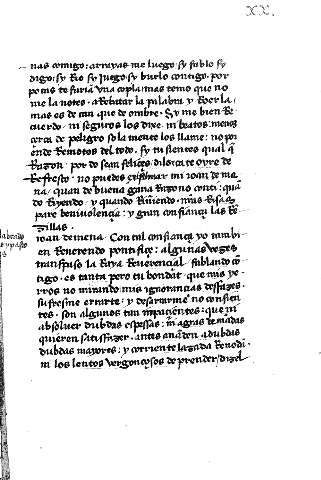 XX.
nas comigo: arrayas me luego: sy fablo sy
digo: sy Rio sy juego: sy burlo contigo. por
potus te furia vna copla: mas temo que no
me la notes. a Rebatar la palabra y Roer la:
mas es de can que de ombre. Sy me bien Re
cuerdo. ni seguros los dixe. ni beatos: menos
cerca de peligro sola mente los llame: no pon
ende Remotos del todo. sy tu sientes qual q
Razon. por do sean felices: dilo: ca te oyre de
Refresco. no puedes mi ioan de me
na. quan de buena gana Razono conti: qua
do Riyendo. y quando Riñiendo. mas Risa
pare beniuolencia: y gran confiança las Re
zillas.
ioan de mena. Con tal confiança yo tambi
en Reuerendo pontifiçe: algunas vezes
transpaso la Raya Reuerencial fablando co
tigo. es tanta pero tu bondat. que mis ye
rros no mirando mis ignorancias desfazes.
sufres me errarte: y desarmarme no consien
tes. son algunos tan impacientes: que ni
absoluer dubdas espessas: ni agras demandas
quieren satisfazer. antes anaden a dubdas
dubdas mayores: y corriente lazada Renodi.
ni los lentos vergonçosos de prender: dizel